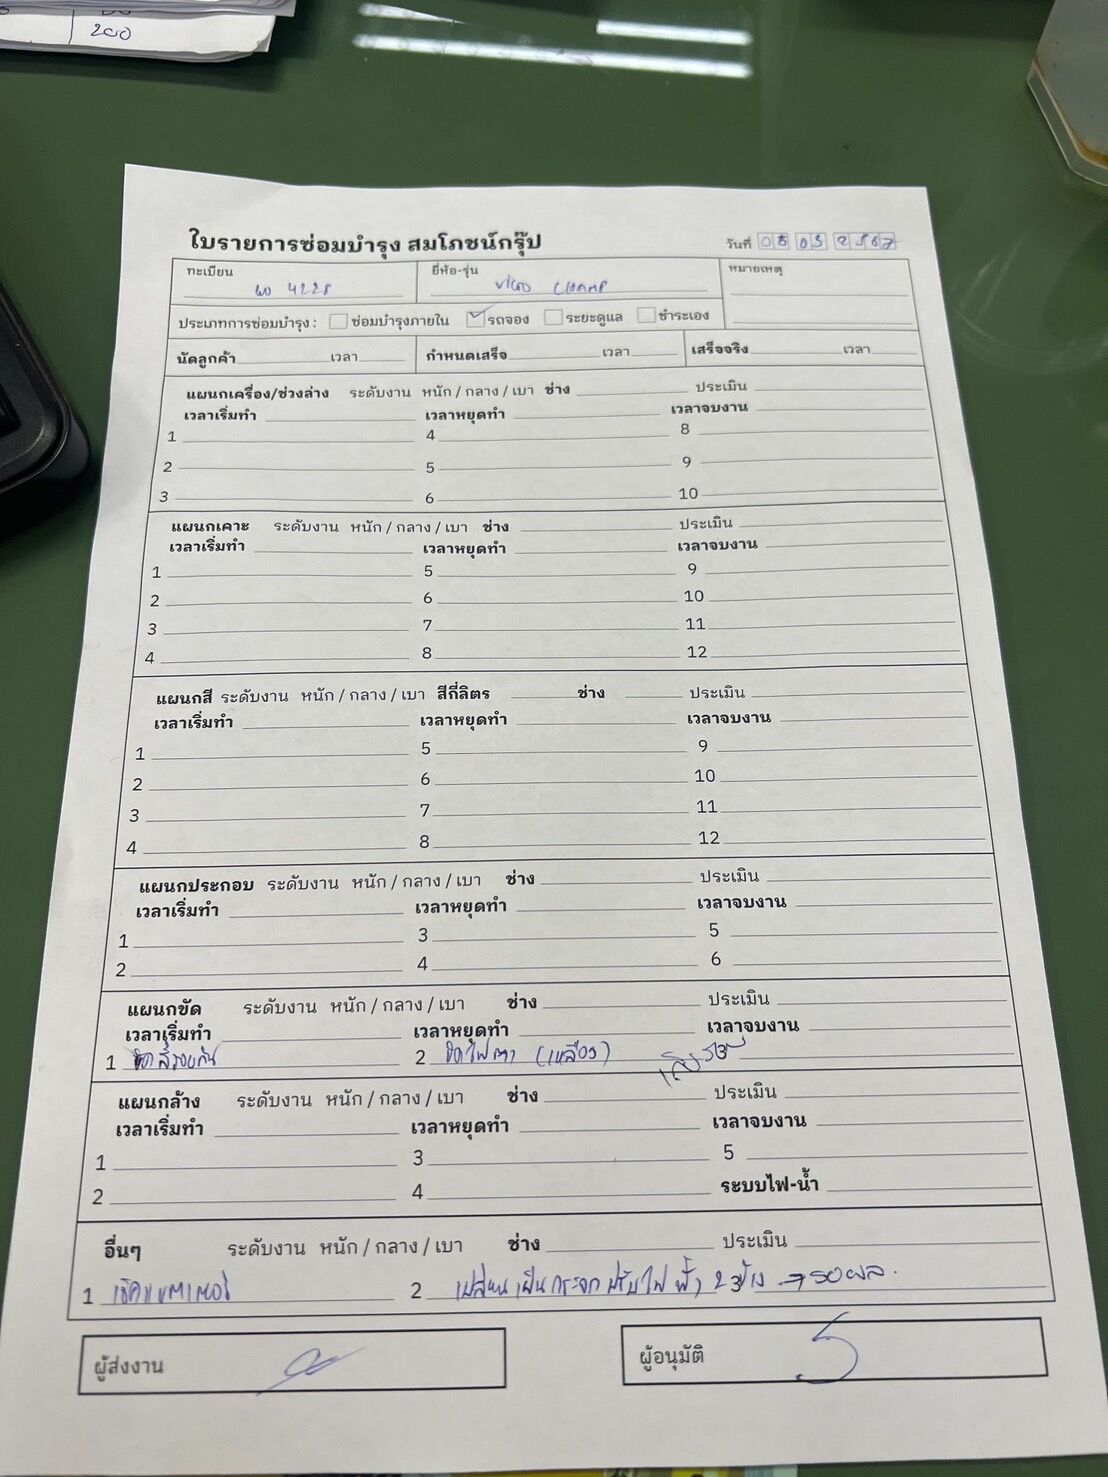 200
ใบรายการซ่อมบำรุง สมโภชน์กรุ๊ป
วันที่ 08 03 2567
ทะเบียน 4228 ยี่ห้อ-รุ่น VIGO CHAMP หมายเหตุ
ประเภทการซ่อมบำรุง : ซ่อมบำรุงภายใน รถจอง ระยะดูแล ชำระเอง
นัดลูกค้า เวลา กำหนดเสร็จ เวลา เสร็จจริง เวลา
แผนกเครื่อง/ช่วงล่าง ระดับงาน หนัก / กลาง / เบา ช่าง ประเมิน
เวลาเริ่มทำ เวลาหยุดทำ เวลาจบงาน
1 4 8
2 5 9
3 6 10
แผนกเคาะ ระดับงาน หนัก / กลาง / เบา ช่าง ประเมิน
เวลาเริ่มทำ เวลาหยุดทำ เวลาจบงาน
1 5 9
2 6 10
3 7 11
4 8 12
แผนกสี ระดับงาน หนัก / กลาง / เบา สีกี่ลิตร ช่าง ประเมิน
เวลาเริ่มทำ เวลาหยุดทำ เวลาจบงาน
1 5 9
2 6 10
3 7 11
4 8 12
แผนกประกอบ ระดับงาน หนัก / กลาง / เบา ช่าง ประเมิน
เวลาเริ่มทำ เวลาหยุดทำ เวลาจบงาน
1 3 5
2 4 6
แผนกขัด ระดับงาน หนัก / กลาง / เบา ช่าง ประเมิน
เวลาเริ่มทำ เวลาหยุดทำ เวลาจบงาน
1 ขัดสีรอบคัน 2 ขัดไฟตา (เหลือง)
แผนกล้าง ระดับงาน หนัก / กลาง / เบา ช่าง ประเมิน
เวลาเริ่มทำ เวลาหยุดทำ เวลาจบงาน
1 3 5
2 4 ระบบไฟ-น้ำ
อื่นๆ ระดับงาน หนัก / กลาง / เบา ช่าง ประเมิน
1 เช็คแบตเตอรี่ 2 เปลี่ยนเป็นกระจกปรับไฟฟ้า 2 ข้าง → รอผล.
ผู้ส่งงาน ผู้อนุมัติ